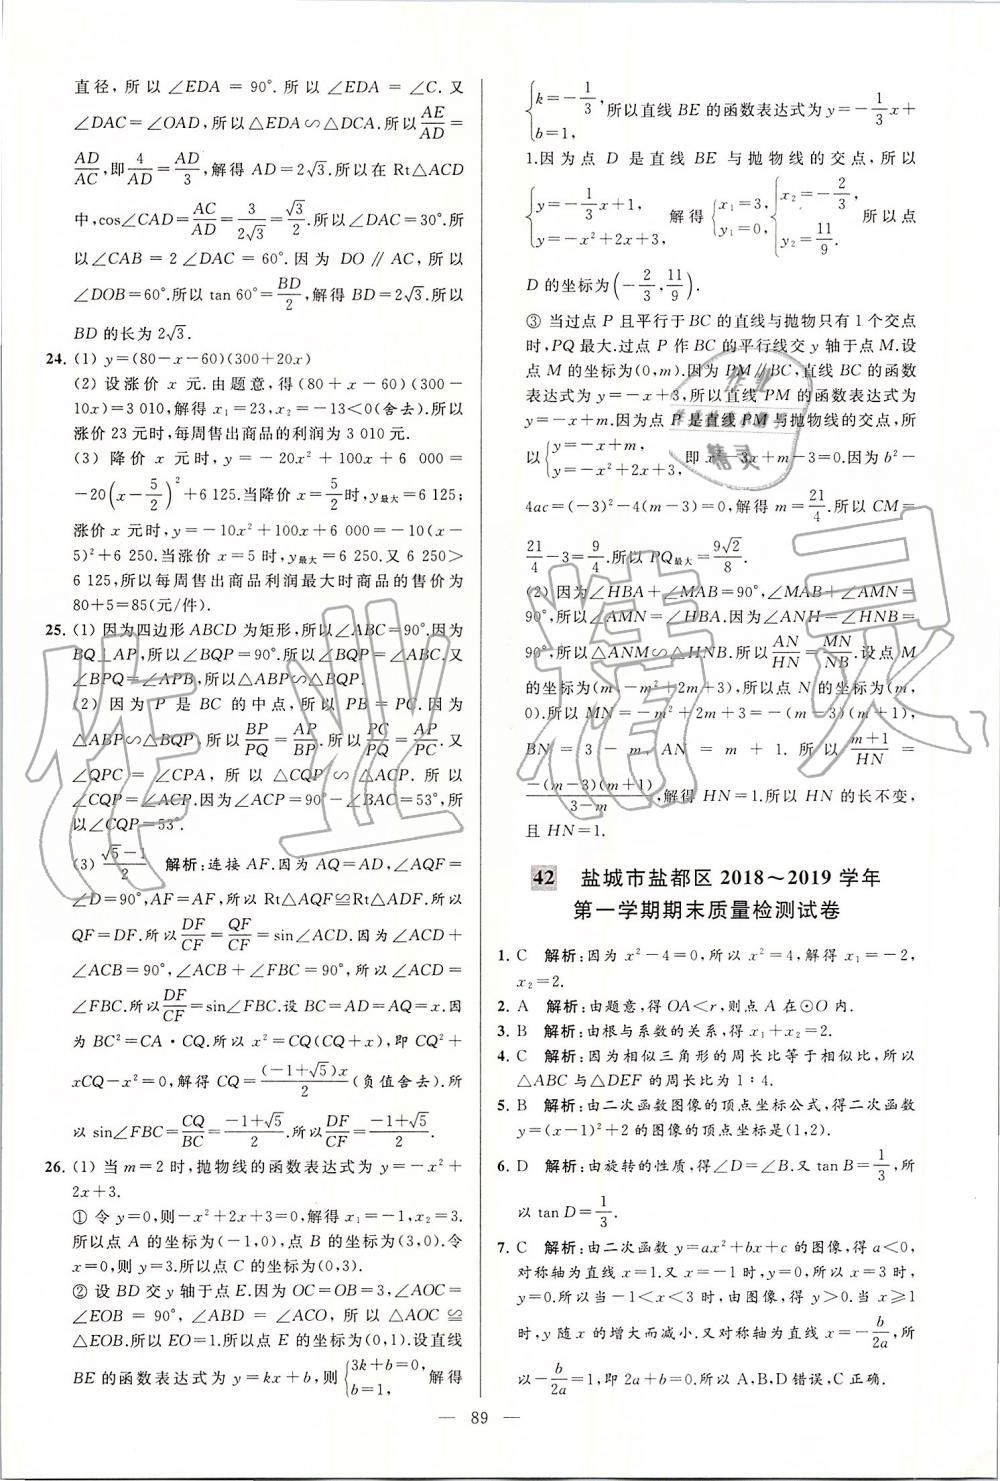 直径,所以∠EDA=90°.所以∠EDA=∠C.又
∠DAC=∠OAD,所以△EDA∽△DCA.所以AE/AD=
AD/AC,即4/AD=AD/3,解得AD=2√3.所以在Rt△ACD
中,cos∠CAD=AC/AD=3/(2√3)=√3/2.所以∠DAC=30°.所
以∠CAB=2∠DAC=60°.因为DO∥AC,所以
∠DOB=60°.所以tan 60°=BD/2,解得BD=2√3.所以
BD的长为2√3.
24. (1) y=(80-x-60)(300+20x)
(2) 设涨价x元.由题意,得(80+x-60)(300-
10x)=3 010,解得x₁=23,x₂=-13<0(舍去).所以
涨价23元时,每周售出商品的利润为3 010元.
(3) 降价x元时,y=-20x²+100x+6 000=
-20(x-5/2)²+6 125.当降价x=5/2时,y最大=6 125;
涨价x元时,y=-10x²+100x+6 000=-10(x-
5)²+6 250.当涨价x=5时,y最大=6 250.又6 250>
6 125,所以每周售出商品利润最大时商品的售价为
80+5=85(元/件).
25. (1) 因为四边形ABCD为矩形,所以∠ABC=90°.因为
BQ⊥AP,所以∠BQP=90°.所以∠BQP=∠ABC.又
∠BPQ=∠APB,所以△ABP∽△BQP.
(2) 因为P是BC的中点,所以PB=PC.因为
△ABP∽△BQP.所以BP/PQ=AP/BP.所以PC/PQ=AP/PC.又
∠QPC=∠CPA,所以△CQP∽△ACP.所以
∠CQP=∠ACP.因为∠ACP=90°-∠BAC=53°,所
以∠CQP=53°.
(3) (√5-1)/2 解析:连接AF.因为AQ=AD,∠AQF=
∠D=90°,AF=AF,所以Rt△AQF≌Rt△ADF.所以
QF=DF.所以DF/CF=QF/CF=sin∠ACD.因为∠ACD+
∠ACB=90°,∠ACB+∠FBC=90°,所以∠ACD=
∠FBC.所以DF/CF=sin∠FBC.设BC=AD=AQ=x.因
为BC²=CA·CQ.所以x²=CQ(CQ+x),即CQ²+
xCQ-x²=0,解得CQ=(-1+√5)x/2(负值舍去).所
以sin∠FBC=CQ/BC=(-1+√5)/2.所以DF/CF=(-1+√5)/2.
26. (1) 当m=2时,抛物线的函数表达式为y=-x²+
2x+3.
① 令y=0,则-x²+2x+3=0,解得x₁=-1,x₂=3.
所以点A的坐标为(-1,0),点B的坐标为(3,0).令
x=0,则y=3.所以点C的坐标为(0,3).
② 设BD交y轴于点E.因为OC=OB=3,∠AOC=
∠EOB=90°,∠ABD=∠ACO,所以△AOC≌
△EOB.所以EO=1.所以点E的坐标为(0,1).设直线
BE的函数表达式为y=kx+b,则{3k+b=0,b=1,解得
{k=-1/3,b=1,所以直线BE的函数表达式为y=-1/3x+
1.因为点D是直线BE与抛物线的交点,所以
{y=-1/3x+1,y=-x²+2x+3,解得{x₁=3,y₁=0,{x₂=-2/3,y₂=11/9.所以点
D的坐标为(-2/3,11/9).
③ 当过点P且平行于BC的直线与抛物只有1个交点
时,PQ最大.过点P作BC的平行线交y轴于点M.设
点M的坐标为(0,m).因为PM∥BC,直线BC的函数
表达式为y=-x+3,所以直线PM的函数表达式为
y=-x+m.因为点P是直线PM与抛物线的交点,所
以{y=-x+m,y=-x²+2x+3,即x²-3x+m-3=0.因为b²-
4ac=(-3)²-4(m-3)=0,解得m=21/4.所以CM=
21/4-3=9/4.所以PQ最大=9√2/8.
(2) 因为∠HBA+∠MAB=90°,∠MAB+∠AMN=
90°,所以∠AMN=∠HBA.因为∠ANH=∠HNB=
90°,所以△ANM∽△HNB.所以AN/HN=MN/NB.设点M
的坐标为(m,-m²+2m+3),所以点N的坐标为(m,
0).所以MN=-m²+2m+3=-(m-3)(m+1),
BN=3-m,AN=m+1.所以(m+1)/HN=
-(m-3)(m+1)/(3-m),解得HN=1.所以HN的长不变,
且HN=1.
42 盐城市盐都区2018～2019学年
第一学期期末质量检测试卷
1. C 解析:因为x²-4=0,所以x²=4,解得x₁=-2,
x₂=2.
2. A 解析:由题意,得OA<r,则点A在⊙O内.
3. B 解析:由根与系数的关系,得x₁+x₂=2.
4. C 解析:因为相似三角形的周长比等于相似比,所以
△ABC与△DEF的周长比为1∶4.
5. B 解析:由二次函数图像的顶点坐标公式,得二次函数
y=(x-1)²+2的图像的顶点坐标是(1,2).
6. D 解析:由旋转的性质,得∠D=∠B.又tan B=1/3,所
以tan D=1/3.
7. C 解析:由二次函数y=ax²+bx+c的图像,得a<0,
对称轴为直线x=1.又x=-1时,y=0,所以x=3时,
y=0.所以当-1<x<3时,由图像,得y>0.当x≥1
时,y随x的增大而减小.又对称轴为直线x=-b/2a,所
以-b/2a=1,即2a+b=0.所以A,B,D错误,C正确.
— 89 —
作业精灵